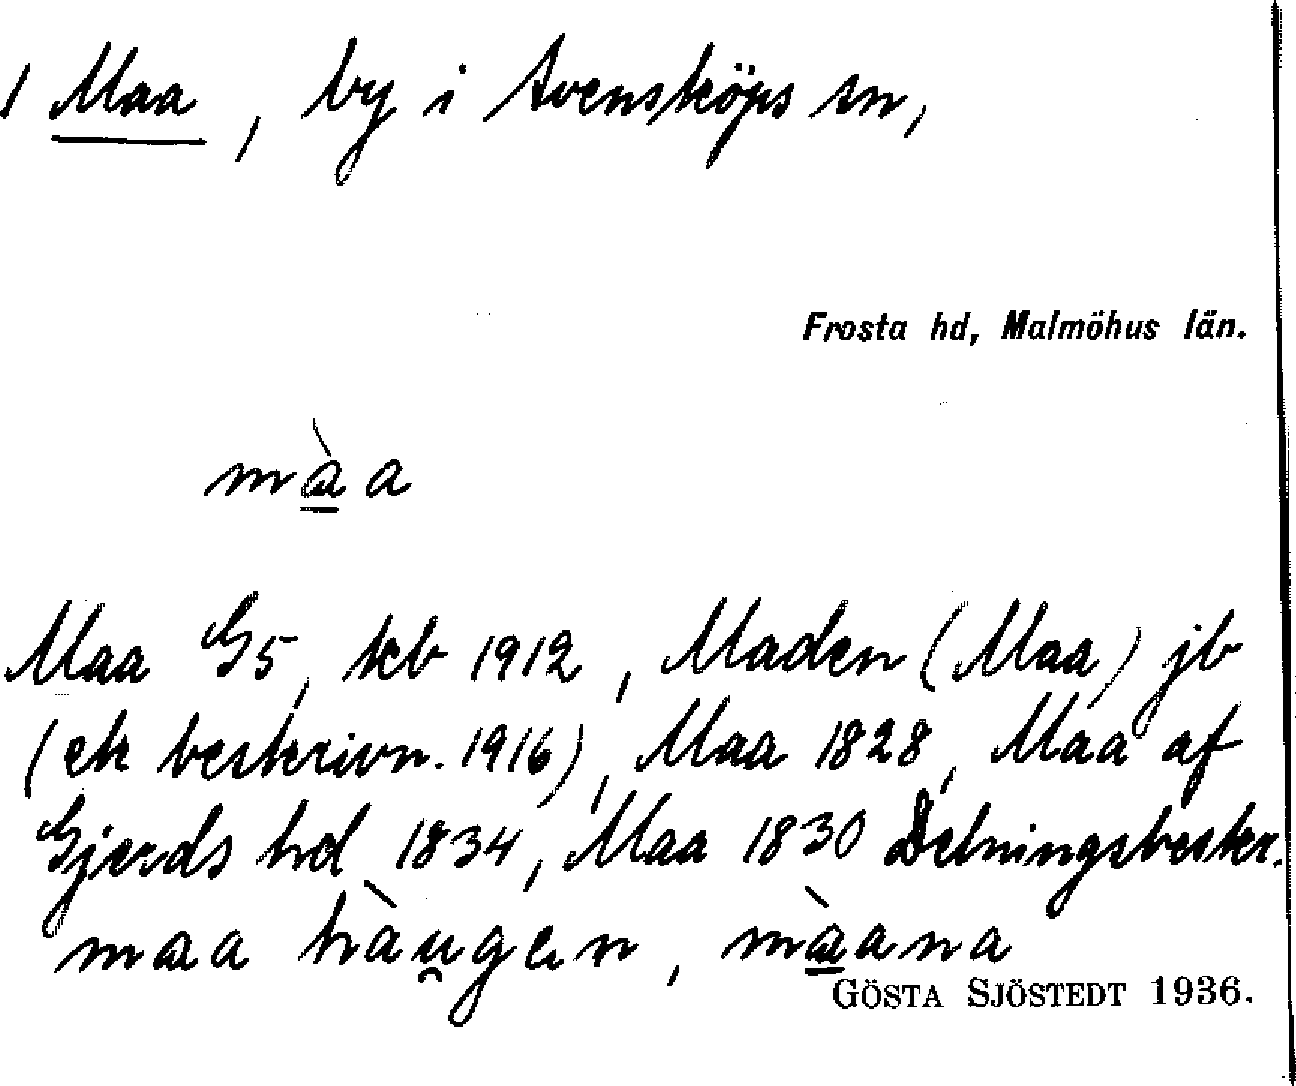 1 Maa, by i Svensköps sn,
Frosta hd, Malmöhus län.
màa
Maa G5, kb 1912, Maden (Maa) jb
(ek beskrivn. 1916), Maa 1828, Maa af
Gjerds hd 1834, Maa 1830 Delningsbeskr.
maa hàu̯gen, màana
GÖSTA SJÖSTEDT 1936.